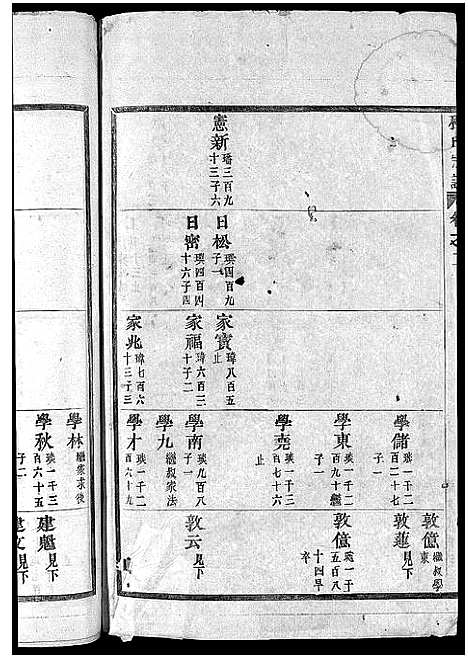 憲新 璠三百九
十三子六
日松 瑛四百九
子一
日密 瑛四百四
十六子四
家寶 瑋八百五
止
家福 瑋六百二
十子二
家兆 瑋七百六
十三子三
學儲 瑛一千二
百二十七
子一
學東 瑛一千二
百九十繼
子一
學堯 瑛一千三
百七十六
止
學南 瑛九百八
子一
學九 繼叔家法
學才 瑛一千二
百六十九
敦億 繼叔學
東
敦蓮 見下
敦億 瑛一千
五百八
十四早
卒
敦云 見下
學林 繼家求後
學秋 瑛一千二
百六十五
子二
建魁 見下
建文 見下